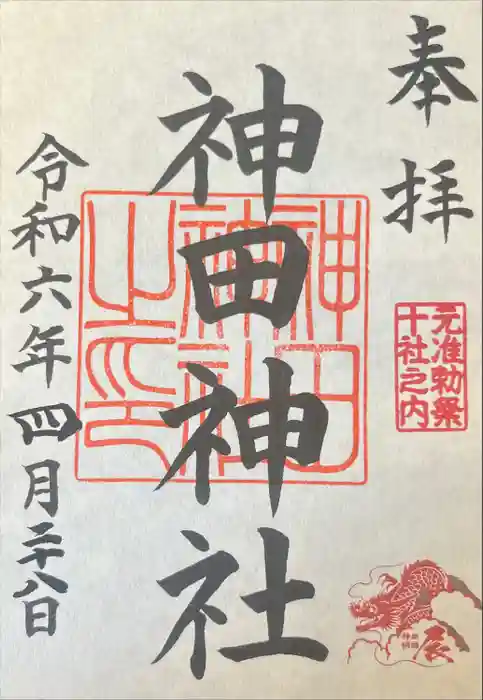 奉拝
元准勅祭
十社之内
辰
神田神社
神田神社之印
令和六年四月二十八日